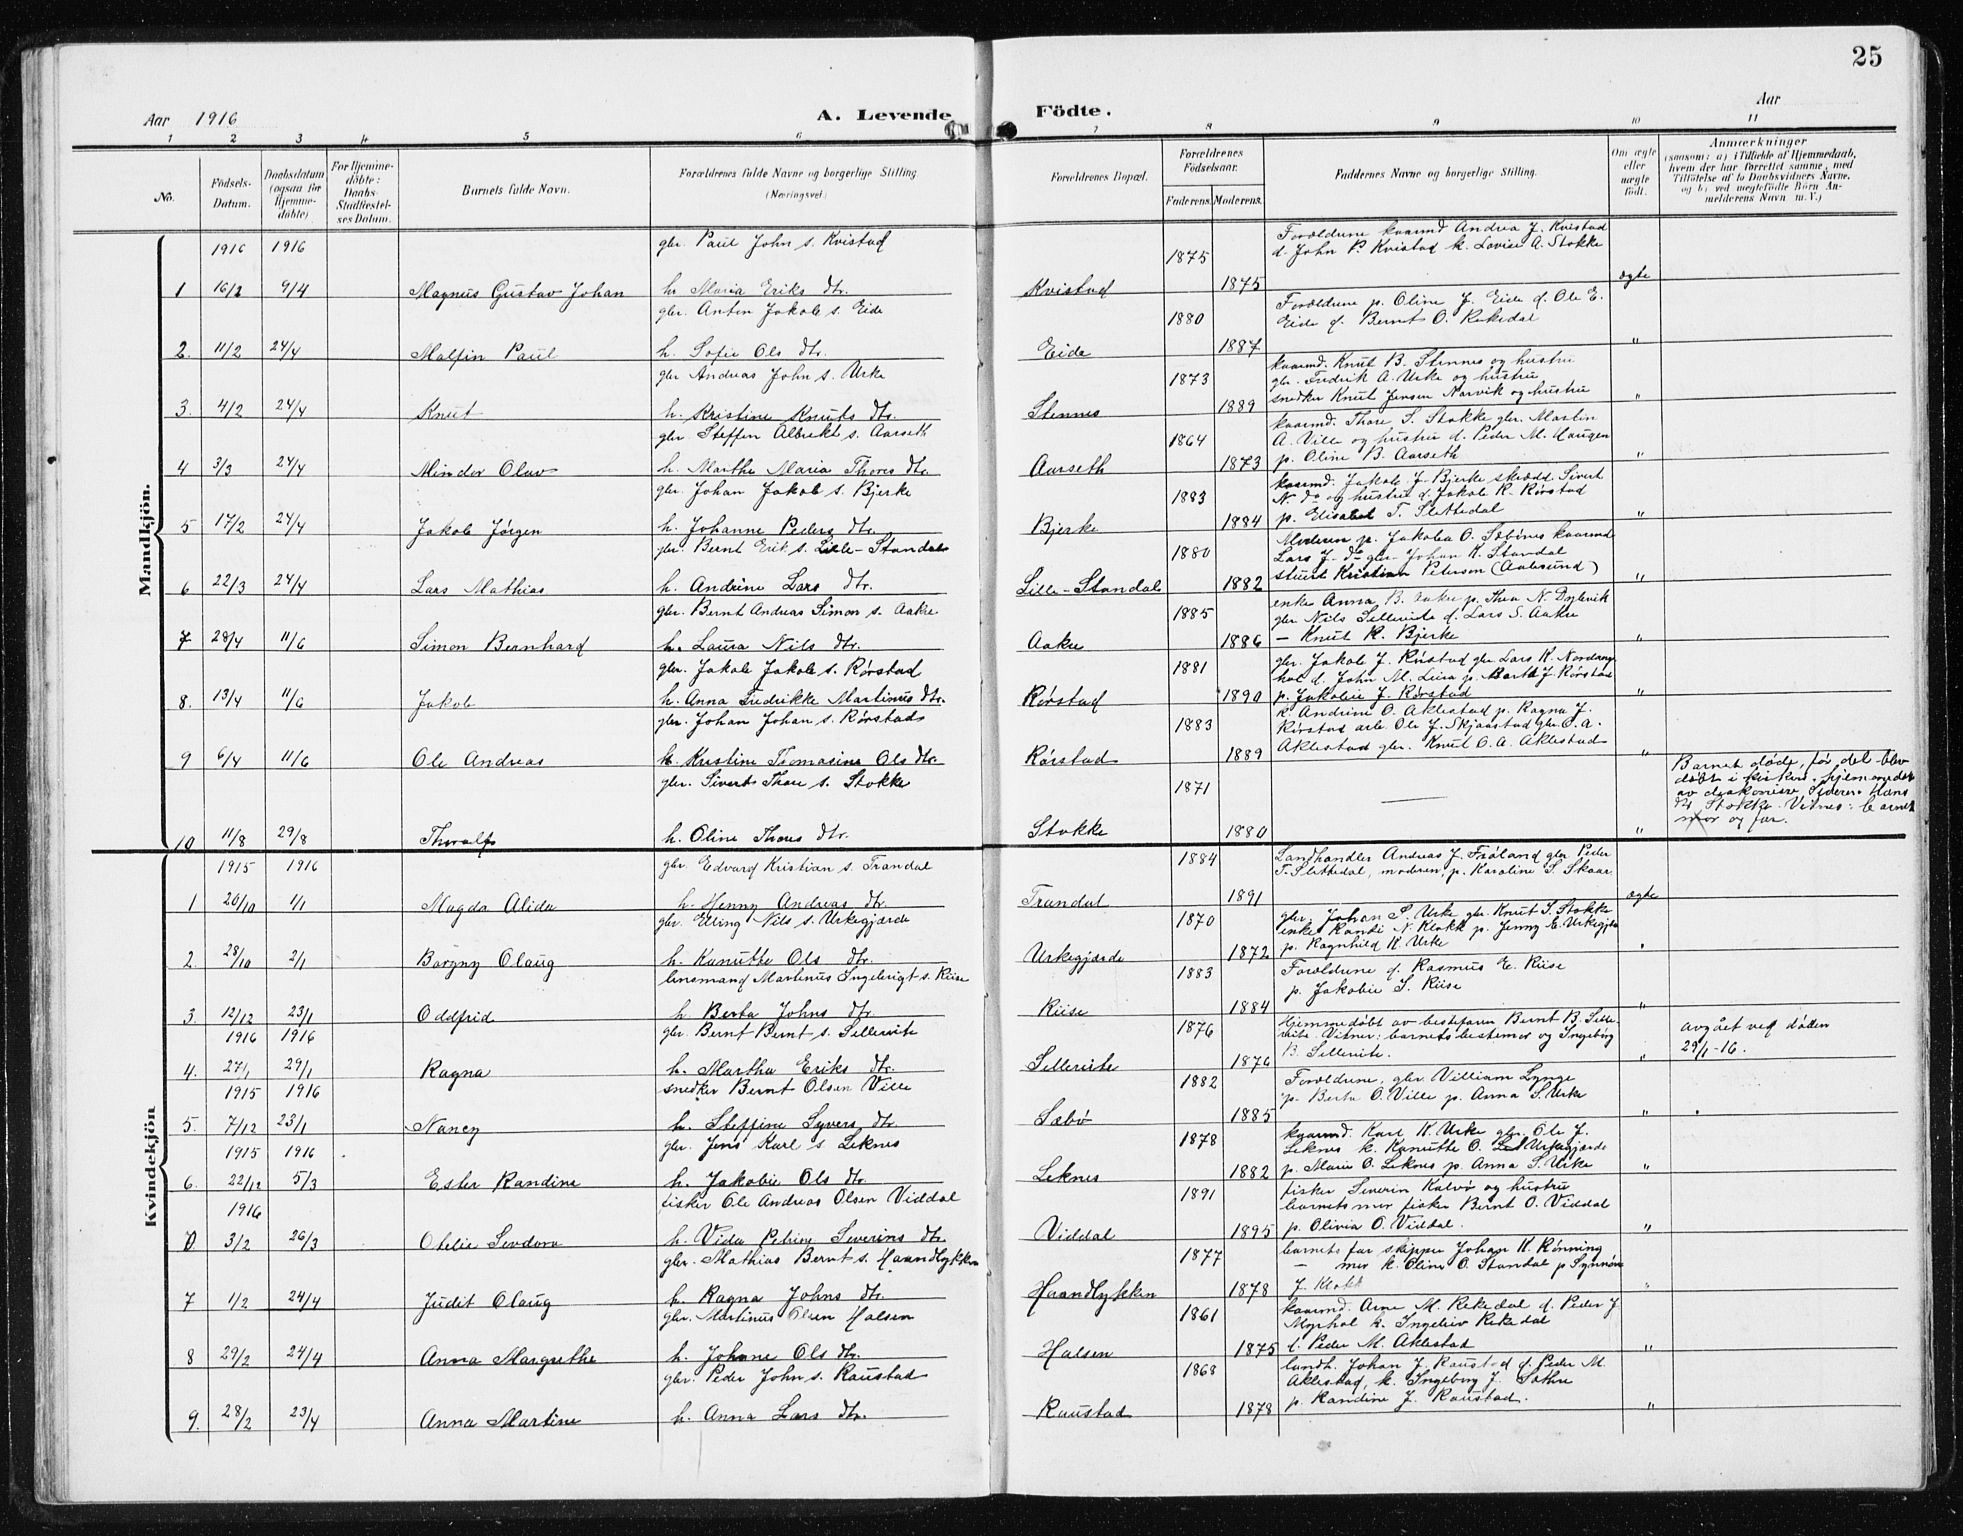 25
Aar 1916
A. Levende Födte.
Aar
1 2 3 4 5 6 7 8 9 10 11
No.
Födsels-Datum.
Daabsdatum (ogsaa for Hjemmedøbte)
For Hjemmedöbte: Daabs-Stadfæstelses Datum.
Barnets fulde Navn.
Forældrenes fulde Navne og borgerlige Stilling (Næringsvei.)
Forældrenes Bopæl.
Forældrenes Födselsaar.
Faderens. Moderens.
Faddernes Navne og borgerlige Stilling.
Om ægte eller uægte födt.
Anmærkninger
(saasom: a) i Tilfælde af Hjemmedaab, hvem der har forrettet samme, med Tilföielse af to Daabsvidners Navne, og b) ved uægtefödte Börn Anmelderens Navn m. V.)
Mandkjön.
1916 1916 gbr. Paul John s. Kvistad 1875 Forældrene kaarmd Andrea J. Kvistad
d. John P. Kvistad k. Lovise A. Stokke
1 16/2 9/4 Magnus Gustav Johan h. Maria Eriks dtr. Kvistad 1875 ægte
gbr. Anton Jakob s. Eide 1880 Forældrene p. Oline J. Eide d. Ole E.
Eide d. Bernt O. Rekedal
2. 11/2 24/4 Malfin Paul h. Sofie Ols dtr. Eide 1887 "
gbr Andreas John s. Urke 1873 kaarmd. Knut B. Stennes og hustru
gbr. Fredrik A. Urke og hustru
3. 4/2 24/4 Knut h. Kristine Knuts dtr. Stennes 1889 snedker Knut Jensen Narvik og hustru "
gbr. Steffen Albrekt s. Aarseth 1864 kaarmd. Thore S. Stokke gbr. Martin
A. Ville og hustru d. Peder M. Haugen
4 3/3 24/4 Mindor Olav h. Marthe Maria Thores dtr. Aarseth 1873 p. Oline B. Aarseth "
gbr. Johan Jakob s. Bjerke 1883 kaarmd. Jakob J. Bjerke skrædd Sivert
N. do og hustru d. Jakob K. Rørstad
5 17/2 24/4 Jakob Jørgen h. Johanne Peders dtr. Bjerke 1884 p. Elisabet T. Slettedal "
gbr. Bernt Erik s. Lille-Standal 1880 Moderen p. Jakobea O. Sæbønes kaarmd
Lars J. do gbr. Johan K. Standal
6 22/3 24/4 Lars Mathias h. Andrine Lars dtr. Lille-Standal 1882 stuert Kristian Petersen (Aalesund) "
gbr. Bernt Andreas Simon s. Aakre 1885 enke Anna B. Aakre p. Thea N. Dylevik
gbr Nils Sellereite d. Lars S. Aakre
7 28/4 11/6 Simon Bernhard h. Laura Nils dtr. Aakre 1886 — Knut K. Bjerke "
gbr. Jakob Jakob s. Rørstad 1881 gbr. Jakob J. Rørstad gbr Lars K. Nordang
hol d. John M. Leira p. Berthe J. Rørstad
8. 13/4 11/6 Jakob h. Anna Fredrikke Martinus dtr. Rørstad 1890 p. Jakobie J. Rørstad "
gbr. Johan Johan s. Rørstad 1883 k. Andrine O. Aklestad p. Ragna J.
Rørstad arb. Ole J. Skjaastad gbr. O. A.
9 6/4 11/6 Ole Andreas h. Kristine Thomasine Ols dtr. Rørstad 1889 Aklestad gbr. Knut O. A. Aklestad "
gbr. Sivert Thore s. Stokke 1871 Barnet døde, før det blev
døbt i kirken. hjemmedøbt
av diakonisse Sideren Hans
dtr Stokke. Vitner: barnets
10 11/8 29/8 Thoralf h. Oline Thores dtr. Stokke 1880 — " mor og far.
Kvindekjön.
1915 1916 gbr. Edvard Kristian s. Trandal 1884 Landhandler Andreas J. Frøland gbr Peder
T. Slettedal, moderen, p. Karoline S. Skaar.
1 20/10 1/1 Magda Alida h. Henny Andreas dtr. Trandal 1891 ægte
gbr. Elling Nils s. Urkegjærde 1870 gbr. Johan S. Urke gbr. Knut S. Stokke
enke Randi N. Klokk p. Jenny E. Urkegjer
2. 28/10 2/1 Borgny Olaug h. Kanutte Ols dtr. Urkegjærde 1872 p. Ragnhild K. Urke "
lensmand Martinus Ingebrigt s. Riise 1883 Forældrene d. Rasmus E. Riise
p. Jakobie S. Riise
3. 12/12 23/1 Oddfrid h. Berta Johns dtr. Riise 1884 "
1916 1916 gbr. Bernt Bernt s. Sellereite 1876 hjemmedøbt av bestefaren Bernt B. Selle-
reite. Vitner: barnets bestemor og Ingeborg
4. 27/1 29/1 Ragna h. Martha Eriks dtr. Sellereite 1876 B. Sellereite. " avgået ved døden
29/1-16.
1915 1916 snedker Bernt Olsen Ville 1882 Forældrene, gbr. Villiam Lynge
p. Berta O. Ville p. Anna S. Urke
5. 7/12 23/1 Nancy h. Steffine Syvers dtr. Sæbø 1885 "
1915 1916 gbr. Jens Karl s. Leknes 1878 kaarmd. Karl K. Urke gbr. Ole J.
Leknes k. Kanutte O. Urkegjærde
6. 22/12 5/3 Ester Randine h. Jakobie Ols dtr. Leknes 1882 p. Marie O. Leknes p. Anna S. Urke "
1916 fisker Ole Andreas Olsen Viddal 1891 fisker Severin Kalvø og hustru
barnets mor fisker Bernt O. Viddal
3/2 26/3 Otelie Sevdora h. Vida Petrine Severins dtr. Viddal 1895 p. Olivia O. Viddal. "
gbr. Mathias Bernt s. Haandlykken 1877 barnets far skipper Johan K. Rønning
— mor k. Oline O. Standal p Synnøve
7 1/2 24/4 Judit Olaug h. Ragna Johns dtr. Haandlykken 1878 J. Klokk "
gbr. Martinus Olsen Halsen 1861 kaarmd. Arne M. Rekedal d. Peder J
Myrhol k. Ingebrio Rekedal
8 29/2 24/4 Anna Margrethe h. Johane Ols dtr. Halsen 1875 Peder M. Aklestad "
gbr. Peder John s. Raustad 1868 landh. Johan J. Raustad d. Peder M.
Aklestad, k. Ingeborg J. Sætre
9. 28/2 23/4 Anna Martine h. Anna Lars dtr. Raustad 1878 p. Randine J. Raustad. "